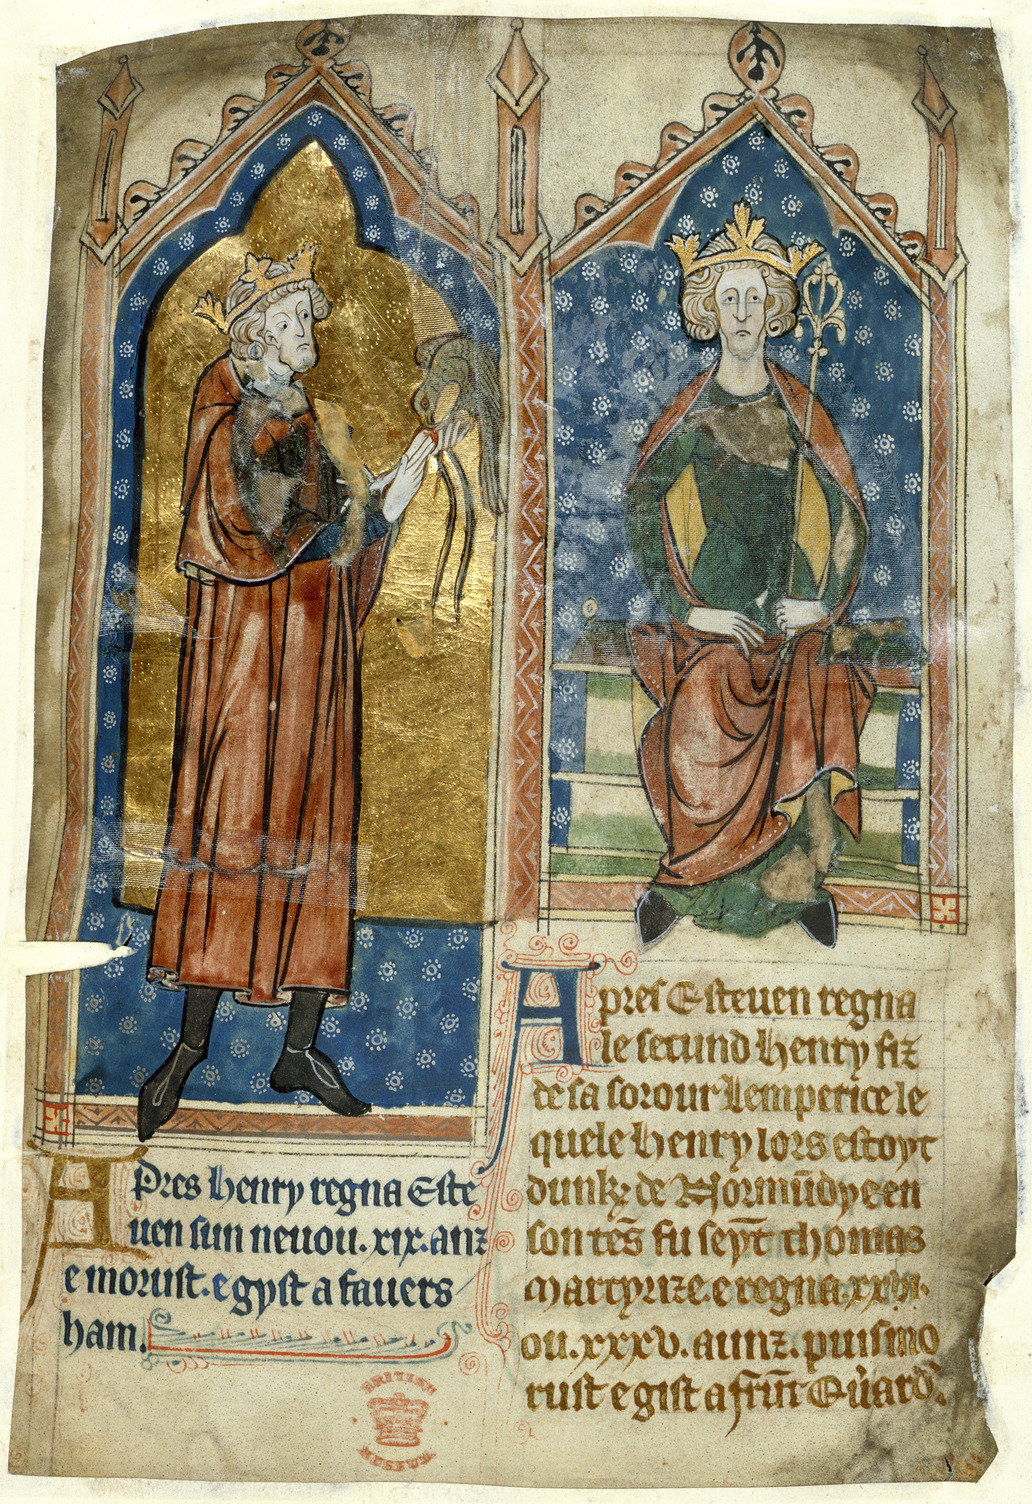 Apres henry regna Este
uen sun neuou .xix. anz
e morust. e gyst a fauers
ham.
Apres Esteuen regna
le secund henry fiz
de sa sorour lemperice le
quele henry lors estoyt
dunk de Normūdye e en
son tēs fu seyt thomas
martyrize. e regna .xxvi.
ou .xxxv. aunz. puis mo
rust e gist a frūt Eūard.
BRITISH
MUSEUM